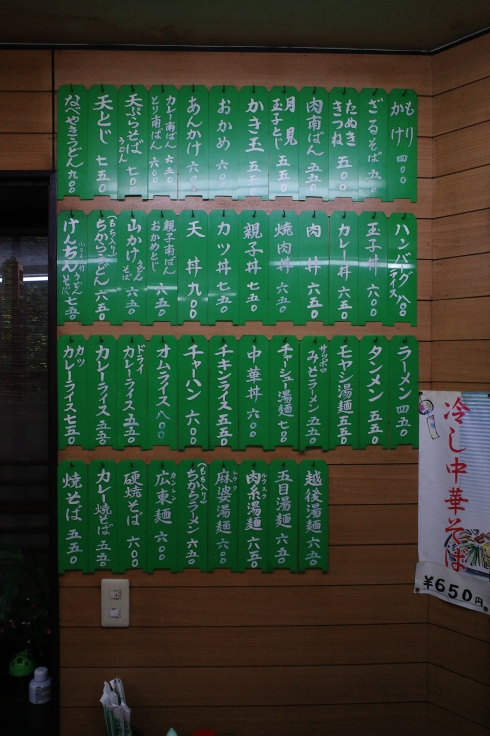 もり かけ 四〇〇
ざるそば 五五〇
たぬき きつね 五〇〇
肉南ばん 五五〇
月見 玉子とじ 五五〇
かき玉 五五〇
おかめ 六〇〇
あんかけ 六〇〇
カレー南ばん 六五〇 とり南ばん 六〇〇
天ぷらそば うどん 七〇〇
天とじ 七五〇
なべやきうどん 九〇〇
ハンバーグライス 八〇〇
玉子丼 六〇〇
カレー丼 六五〇
肉丼 六五〇
焼肉丼 六五〇
親子丼 七五〇
カツ丼 七五〇
天丼 九〇〇
親子南ばん おかめとじ 六五〇
山かけ うどん そば 六五〇
(もち入り) ちからうどん 六五〇
けんちん うどん そば 七五〇
ラーメン 四五〇
タンメン 五五〇
モヤシ湯麺 五五〇
サッポロ みそラーメン 五五〇
チャーシュー湯麺 七〇〇
中華丼 六〇〇
チキンライス 五五〇
チャーハン 六〇〇
オムライス 八〇〇
ドライ カレーライス 六五〇
カレーライス 五五〇
カツ カレーライス 七五〇
越後湯麺 六五〇
五目湯麺 六五〇
肉糸湯麺 六五〇
麻婆湯麺 六五〇
(もち入り) ちからラーメン 六五〇
広東麺 六〇〇
硬焼そば 六〇〇
カレー焼そば 五五〇
焼そば 五五〇
冷し中華そば
¥650円